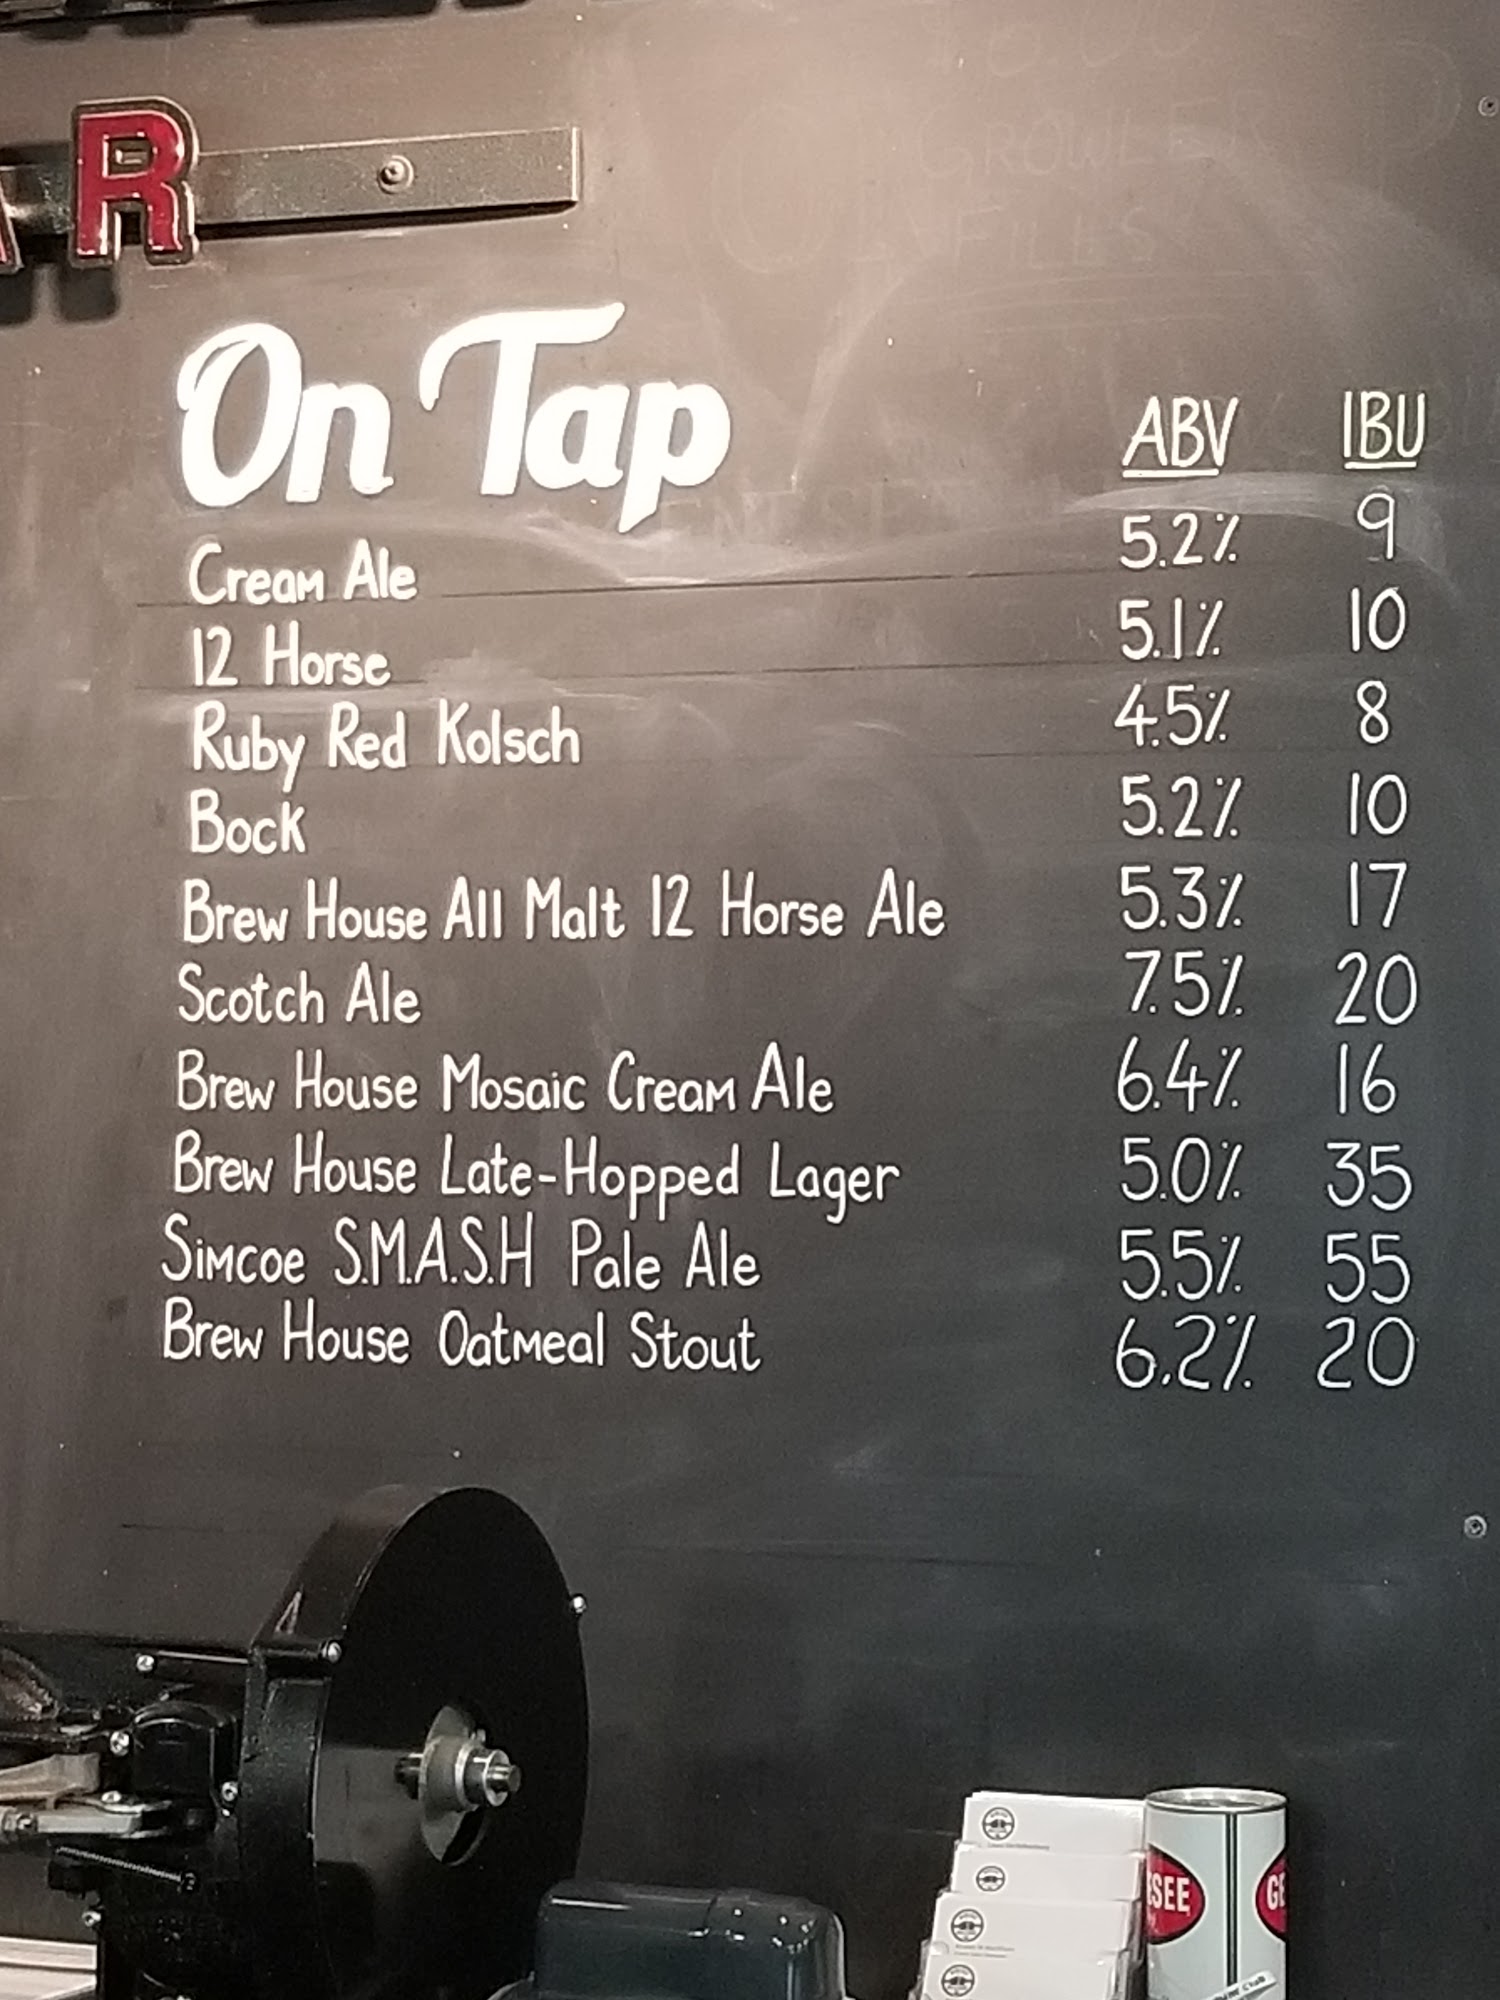 R
GROWLER
FILLS
On Tap
ABV IBU
Cream Ale 5.2% 9
12 Horse 5.1% 10
Ruby Red Kolsch 4.5% 8
Bock 5.2% 10
Brew House All Malt 12 Horse Ale 5.3% 17
Scotch Ale 7.5% 20
Brew House Mosaic Cream Ale 6.4% 16
Brew House Late-Hopped Lager 5.0% 35
Simcoe S.M.A.S.H Pale Ale 5.5% 55
Brew House Oatmeal Stout 6.2% 20
SEE GE